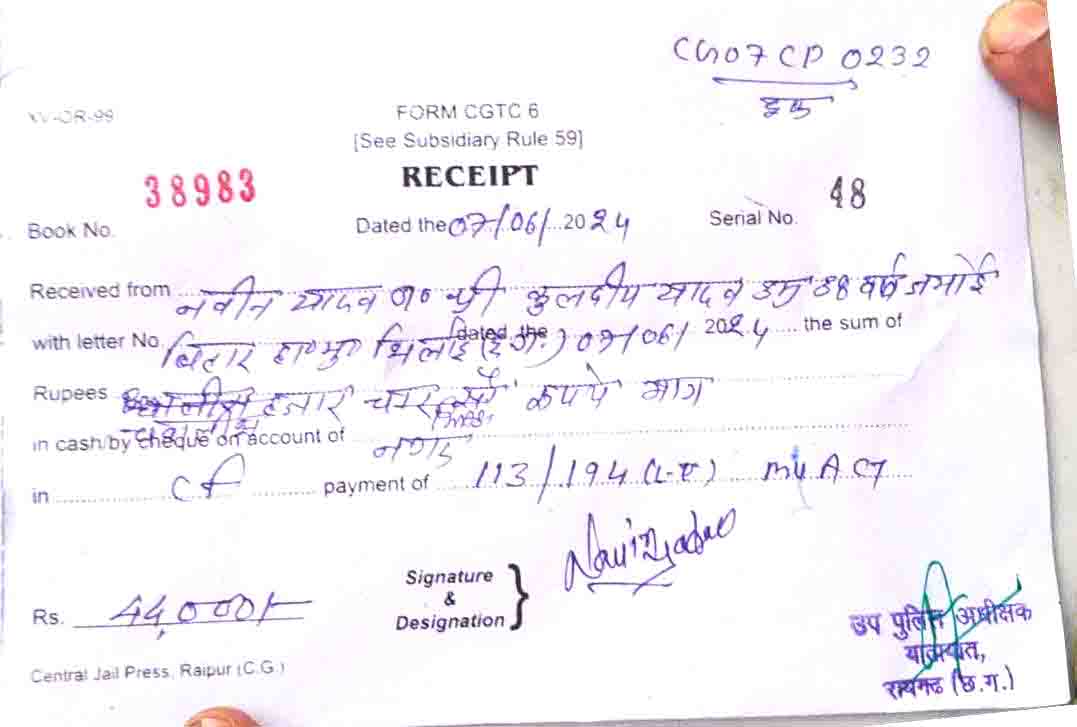 CG07CP 0232
ट्रक
XV-OR-99
FORM CGTC 6
[See Subsidiary Rule 59]
RECEIPT
38983
48
Book No.
Dated the 07/06/ 2024
Serial No.
Received from नवीन यादव श्री कुलदीप यादव उम्र 38 वर्ष जमोई
with letter No. बिहार भिलाई dated the 07/06/ 2024 the sum of
Rupees हजार रुपये मात्र
in cash/by cheque on account of नगद
in CF payment of 113/194 MV ACT
Navin Yadav
Signature
&
Designation
Rs. 44,000/-
उप पुलिस अधीक्षक
यातायात,
रायगढ (छ.ग.)
Central Jail Press, Raipur (C.G.)